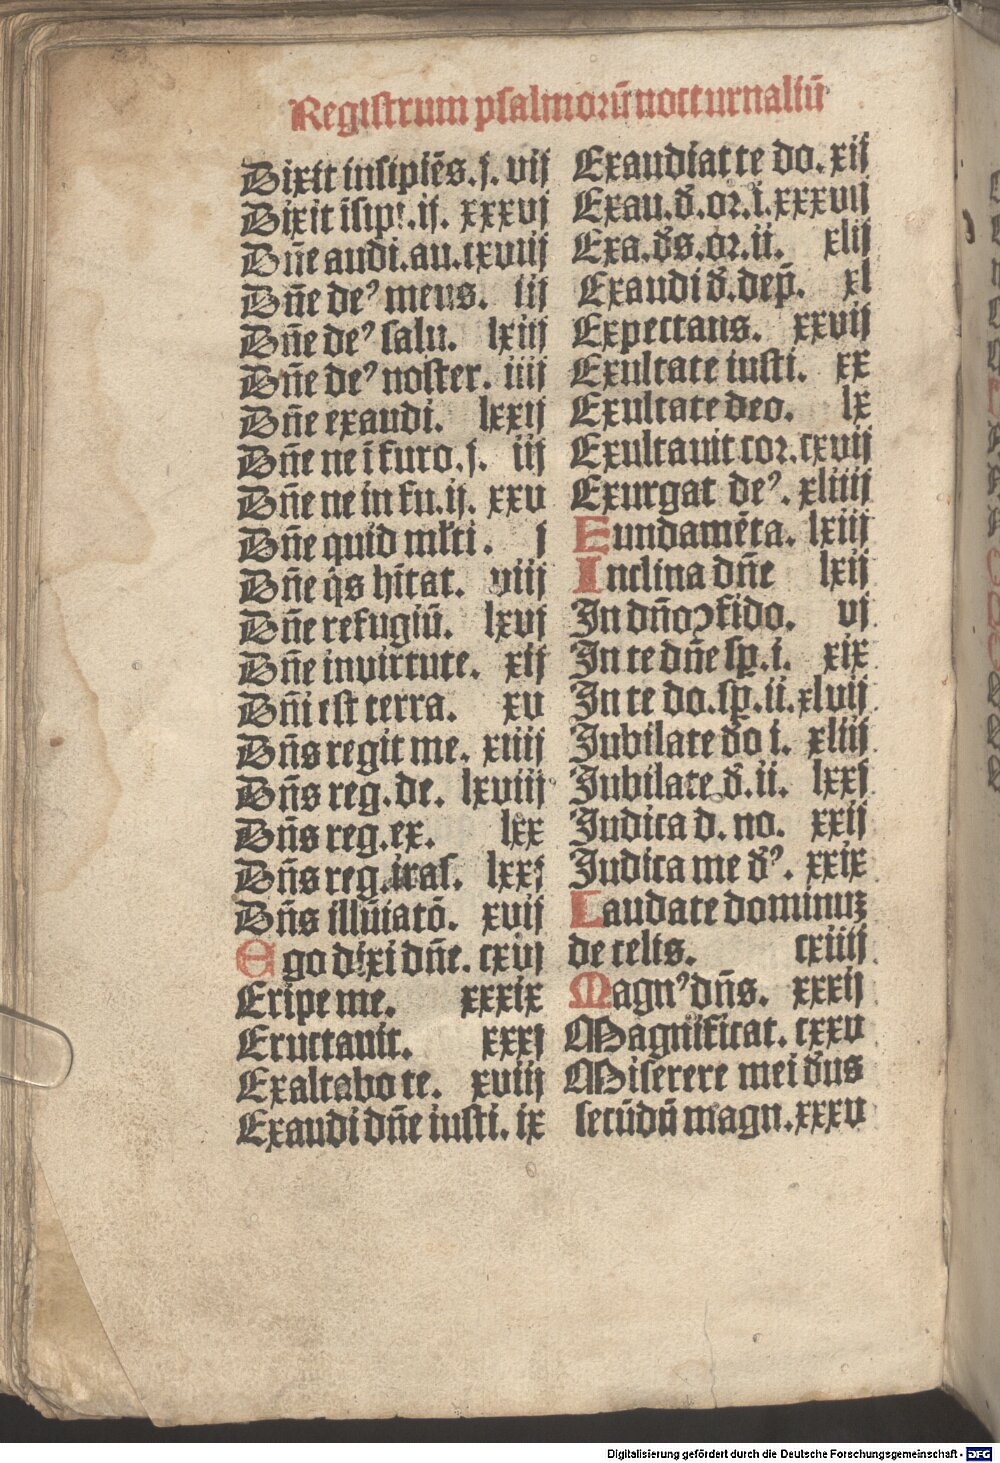 Registrum psalmorū nocturnaliū
Dixit insipiēs.j. vij
Dixit īsipi.ij. xxxvj
Dn̄e audi.au.cxviij
Dn̄e deꝰ meus. iij
Dn̄e deꝰ salu. lxiij
Dn̄e deꝰ noster. iiij
Dn̄e exaudi. lxxij
Dn̄e ne ī furo.j. iij
Dn̄e ne in fu.ij. xxv
Dn̄e quid ml̄ti. j
Dn̄e q̇s hītat. viij
Dn̄e refugiū. lxvj
Dn̄e in virtute. xij
Dn̄i est terra. xv
Dn̄s regit me. xiiij
Dn̄s reg.de. lxviij
Dn̄s reg.ex. lxx
Dn̄s reg.iras. lxxj
Dn̄s illūiatō. xvij
Ego dixi dn̄e. cxvj
Eripe me. xxxix
Eructauit. xxxj
Exaltabo te. xviij
Exaudi dn̄e iusti. ix
Exaudiat te do. xij
Exau.d̄.or.i.xxxvij
Exa.d̄s.or.ii. xlij
Exaudi d̄.dep̄. xl
Expectans. xxvij
Exultate iusti. xx
Exultate deo. lx
Exultauit cor.cxvij
Exurgat deꝰ. xliiij
Fundamēta. lxiij
Inclina dn̄e lxij
In dn̄o ↄfido. vj
In te dn̄e sp̄.i. xix
In te do.sp̄.ii.xlvij
Jubilate d̄o i. xliij
Jubilate d̄.ii. lxxj
Judica d.no. xxij
Judica me d̄ꝰ. xxix
Laudate dominuʒ
de celis. cxiiij
Magnꝰ dn̄s. xxxij
Magnificat. cxxv
Miserere mei d̄us
secūdū magn.xxxv
Digitalisierung gefördert durch die Deutsche Forschungsgemeinschaft - DFG